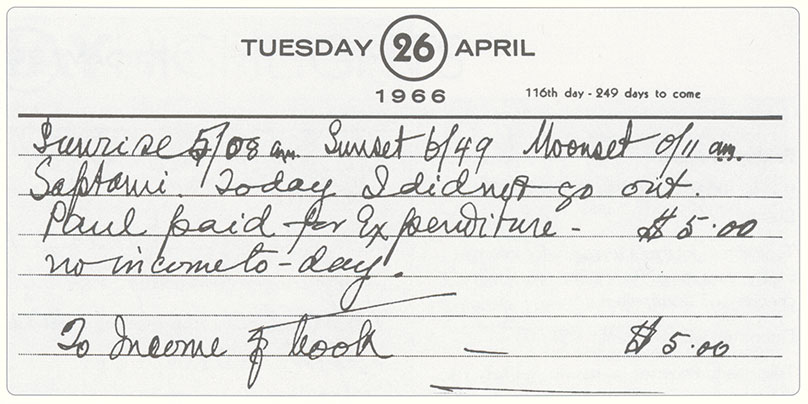 TUESDAY 26 APRIL
1966
116th day - 249 days to come
Sunrise 5/08 am. Sunset 6/49 Moonset 0/11 am.
Saptami. Today I did not go out.
Paul paid for Expenditure - $5.00
no income to-day.
To Income of book — $5.00